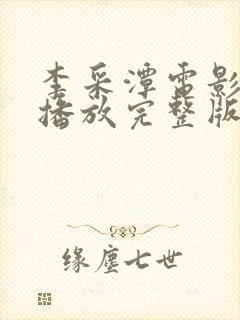 李采潭电影
播放完整版
缘尘七世